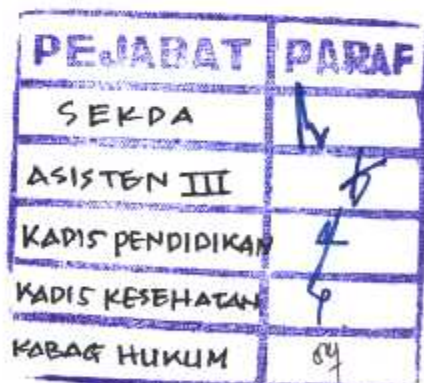 PEJABAT PARAF
SEKDA
ASISTEN III
KADIS PENDIDIKAN
KADIS KESEHATAN
KABAG HUKUM